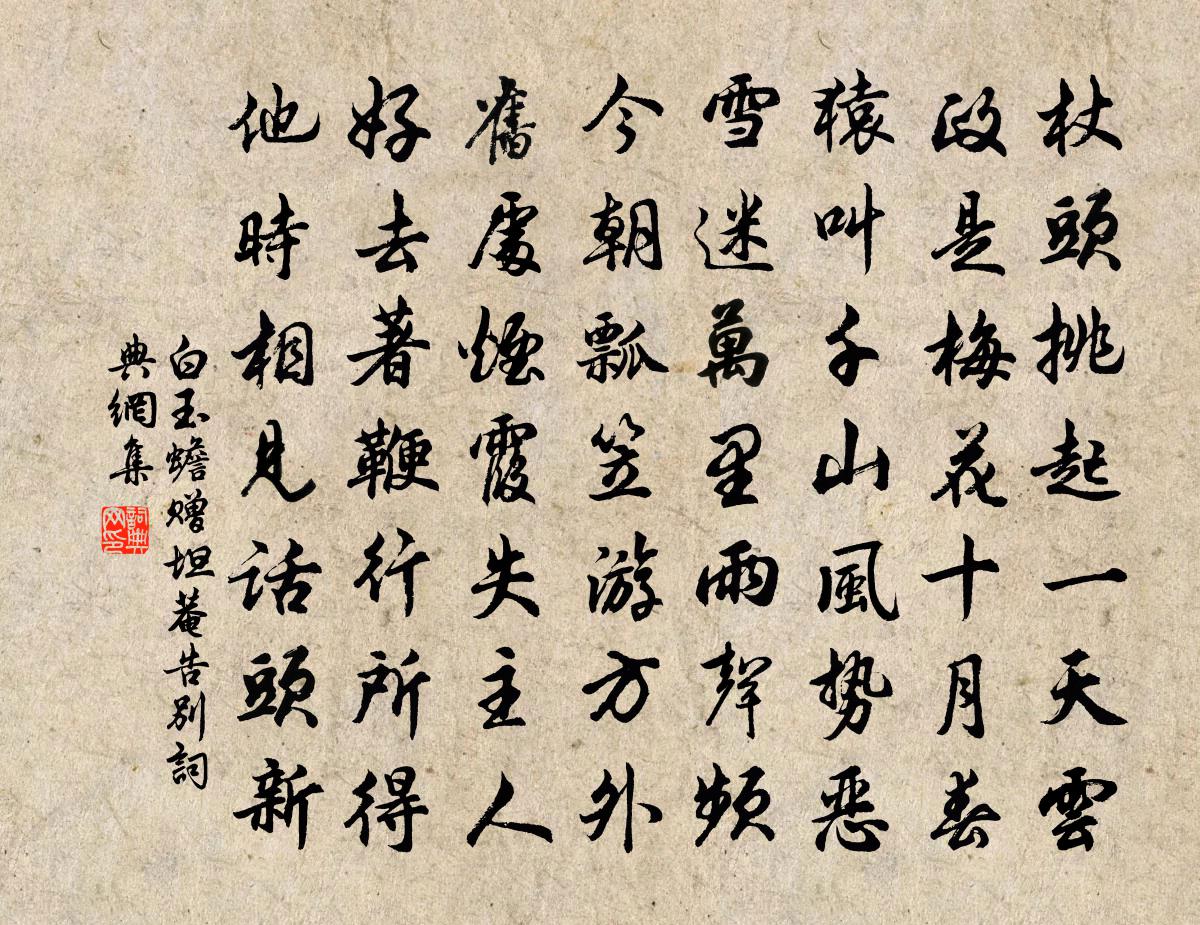 杖頭挑起一天雲
政是梅花十月春
猿叫千山風勢惡
雪迷萬里雨聲頻
今朝瓢笠游方外
舊處煙霞失主人
好去著鞭行所得
他時相見話頭新
白玉蟾贈坦菴告別詞
典網集
詞典
网印